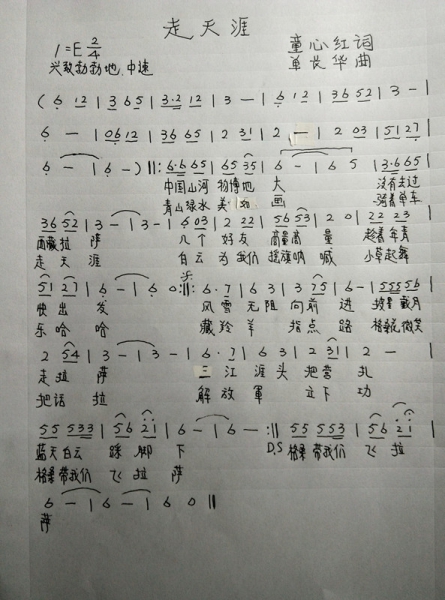 走天涯
1=E 2/4 童心红词
兴致勃勃地、中速 单长华曲
( 6 12 | 3 6 5 | 3·2 12 | 3 — | 6 12 | 36 52 | 3 — |
6 — | 06 12 | 36 65 | 2 31 | 2 — | 2 03 | 51 27 |
6 — | 6 — ) ‖: 6·6 65 | 65 35 | 6 — | 6 5 | 3·6 65 |
中国山河 物博地 大 没有去过
青山绿水 美 如 画 骑着单车
36 52 | 3 — | 3 — | 6 03 | 2 22 | 56 53 | 2 0 | 22 23 |
西藏拉 萨 几个 好友 商量商 量 趁着年青
走天 涯 白云 为我们 摇旗呐 喊 小草起舞
51 27 | 6 — | 6 0 :‖: 6·7 | 6 3 | 3 75 | 6 — | 555 56 |
快出 发 风雪 无阻 向前 进 披星戴月
乐哈 哈 藏羚 羊 指点 路 格桑花微笑
2 54 | 3 — | 3 — | 6·7 | 6 3 | 2 31 | 2 — |
走拉 萨 三江 源头 把营 扎
把话 拉 解放 軍 立下 功
55 533 | 56 2i | 6 — | 6 — :‖ 55 553 | 56 2i |
蓝天白云 踩脚 下 D.S 格桑带我们 飞 拉
格桑带我们 飞拉 萨
6 — | 6 — | 6 0 ‖
萨